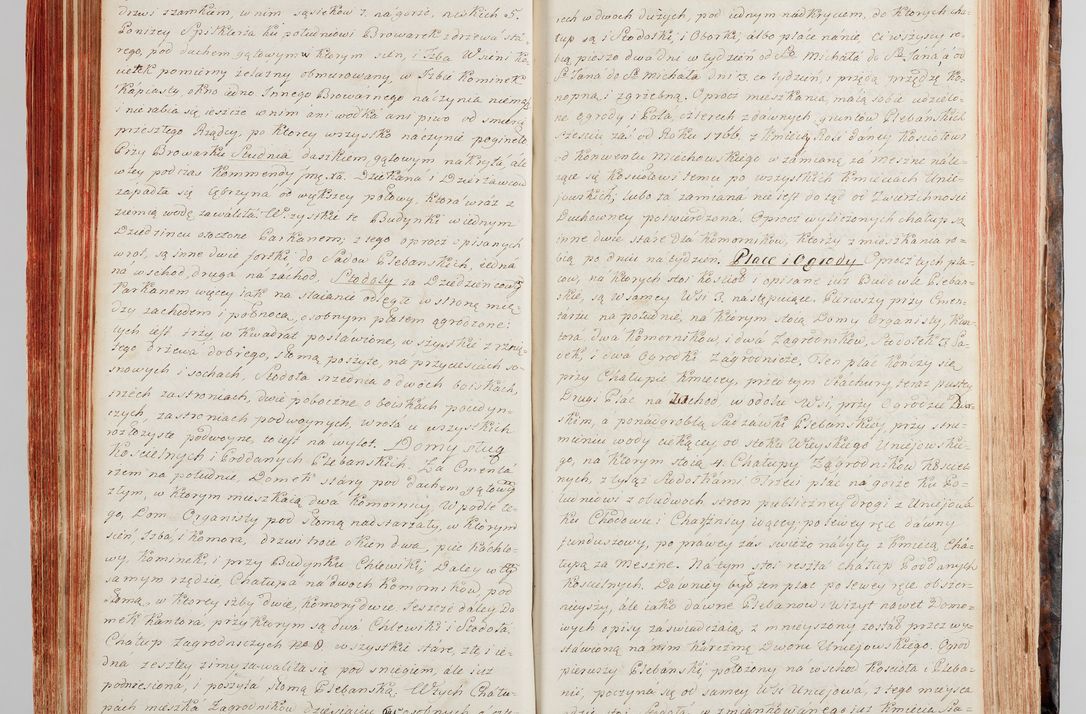 drzwi z zamkiem, w nim sąsieków 7. na górze, niskich 5.
Poniżey Spiklerza ku południowi Browarek z drzewa sta-
rego, pod dachem gątowym w którym sien, i Izba. W sieni ko-
ciełek pomierny żelazny obmurowany, w Izbie Kominek
Kapiasty, okno iedno. Innego Browarnego naczynia niemasz
i nie rabia się ieszcze w nim ani wódka ani piwo od smierci
przeszłego Rządcy, po którey wszystko naczynie poginęło
Przy Browarku Studnia daszkiem gątowym nakryta, ale
w ley podczas Kommendy Jmę Xa. Dziekana i Dzierżawców
zapadła się Cębrzyna od większey połowy, która wraz z
ziemią wodę zawaliła. Wszystkie te Budynki w iednym
Dziedzińcu otoczone Parkanem; z tego oprocz opisanych
wrot, są inne dwie forski, do Sadow Plebańskich, iedna
na wschod, druga na zachod. Stodoły za Dziedzińcowy
Parkanem więcey iak na staianie odległe w stronę mie-
dzy zachodem i północą, osobnym płotem ogrodzone:
tych iest trzy w kwadrat postawione, wszystkie z rznię-
tego drzewa dobrego, słomą poszyte, na przyciesiach so-
snowych i sochach, Stodoła srzednia o dwoch boiskach,
trzech zastroniach, dwie poboczne o boiskach poiedyn-
czych, zastroniach podwoynych, wrota u wszystkich
rozłożyste podwoyne, to iest na wylot. Domy sług
Kościelnych i Poddanych Plebańskich. Za Cmenta-
rzem na południe, Domek stary pod dachem gątowy
złym, w którym mieszkaią dwa Komornicy. W podle te-
go, Dom Organisty pod słomą nadstarzały, w którym
sień, Izba, i Komora, drzwi troie okien dwa, piec kachlo-
wy, Kominek, i przy Budynku Chlewiki. Daley w tey
samym rzędzie, Chałupa na dwoch Komorników, pod
słomą, w ktorey izby dwie, komory dwie. Ieszcze daley Do-
mek Kantora, przy którym są dwa Chlewiki i Stodoła.
Chałup Zagrodniczych No 8. wszystkie stare, złe i ie-
dna zeszłey zimy zawaliła się pod sniegiem, ale iuż
podniesiona, i poszyta słomą Plebańską. W tych Chału-
pach mieszka Zagrodników dziesiąciu osobnych
iech w dwoch dużych, pod iednym nadkryciem, do ktorych cha-
łup są i Stodołki, i Oborki, albo płace na nie. Ci wszyscy ro-
bią pieszo dwa dni w tydzień od St. Michała do St. Jana a od
St. Jana do St. Michała dni 3. co tydzień, i przędą przędzę ko-
nopną, i zgrzebną. Oprocz mieszkania, maią sobie udzielo-
ne ogrody i Pola, czterech z dawnych gruntow Plebańskich
sześciu zaś od Roku 1766. z kmiecią Roś daney Kościołowi
od Konwentu Miechowskiego w zamianę za meszne nale-
żące się Kościołowi temu po wszystkich Kmieciach Unie-
jowskich, lubo ta zamiana nie iest dotąd od Zwierzchności
Duchowney potwierdzona. Oprocz wyliczonych chałup są
inne dwie stare dla Komorników, ktorzy z mieszkania ro-
bią po dniu na tydzień. Płace i Ogrody. Oprocz tych pla-
cow, na których stoi Kościoł i opisane iuż Budowle Pleban-
skie, są w samey Wsi 3. następuiące. Pierwszy przy Cmen-
tarzu na południe, na którym stoią Domy Organisty, Kan-
tora, dwa Komorników, i dwa Zagrodników, Stodołek 3. Sa-
dek, i dwa Ogrodki Zagrodnicze. Ten plac kończy się
przy Chałupie kmiecey, przed tym Stachury, teraz pustey
Drugi Plac na Zachod w odole Wsi, przy Ogrodzie Dwor-
skim, a ponad groblą Sadzawki Plebańskiey, przy stru-
mieniu wody ciekącey od stoku Wieyskiego Uniejowskie-
go, na którym stoią 4. Chałupy Zagrodników Kościel-
nych, z tyłąż Stodołkami. Trzeci plac na gorze ku Po-
łudniowi z obudwoch stron publiczney drogi z Uniejowa
ku Chodowu i Charsnicy idącey, po lewey ręce dawny
funduszowy, po prawey zas swieżo nabyty z Kmiecą Cha-
łupą za Meszne. Na tym stoi reszta chałup Poddanych
Kościelnych. Dawniey był ten plac po lewey ręce obszer-
nieyszy, ale iako dawne Plebanow i Wizyt nawet Domo-
wych opisy zaświadczaią, zmnieyszony został przez wy-
stawioną na nim Karczmę Dworu Uniejowskiego. Ogrod
pierwszy Plebański, położony na wschod Kościoła i Pleba-
nii, poczyna się od samey Wsi Uniejowa, z tego mieysca